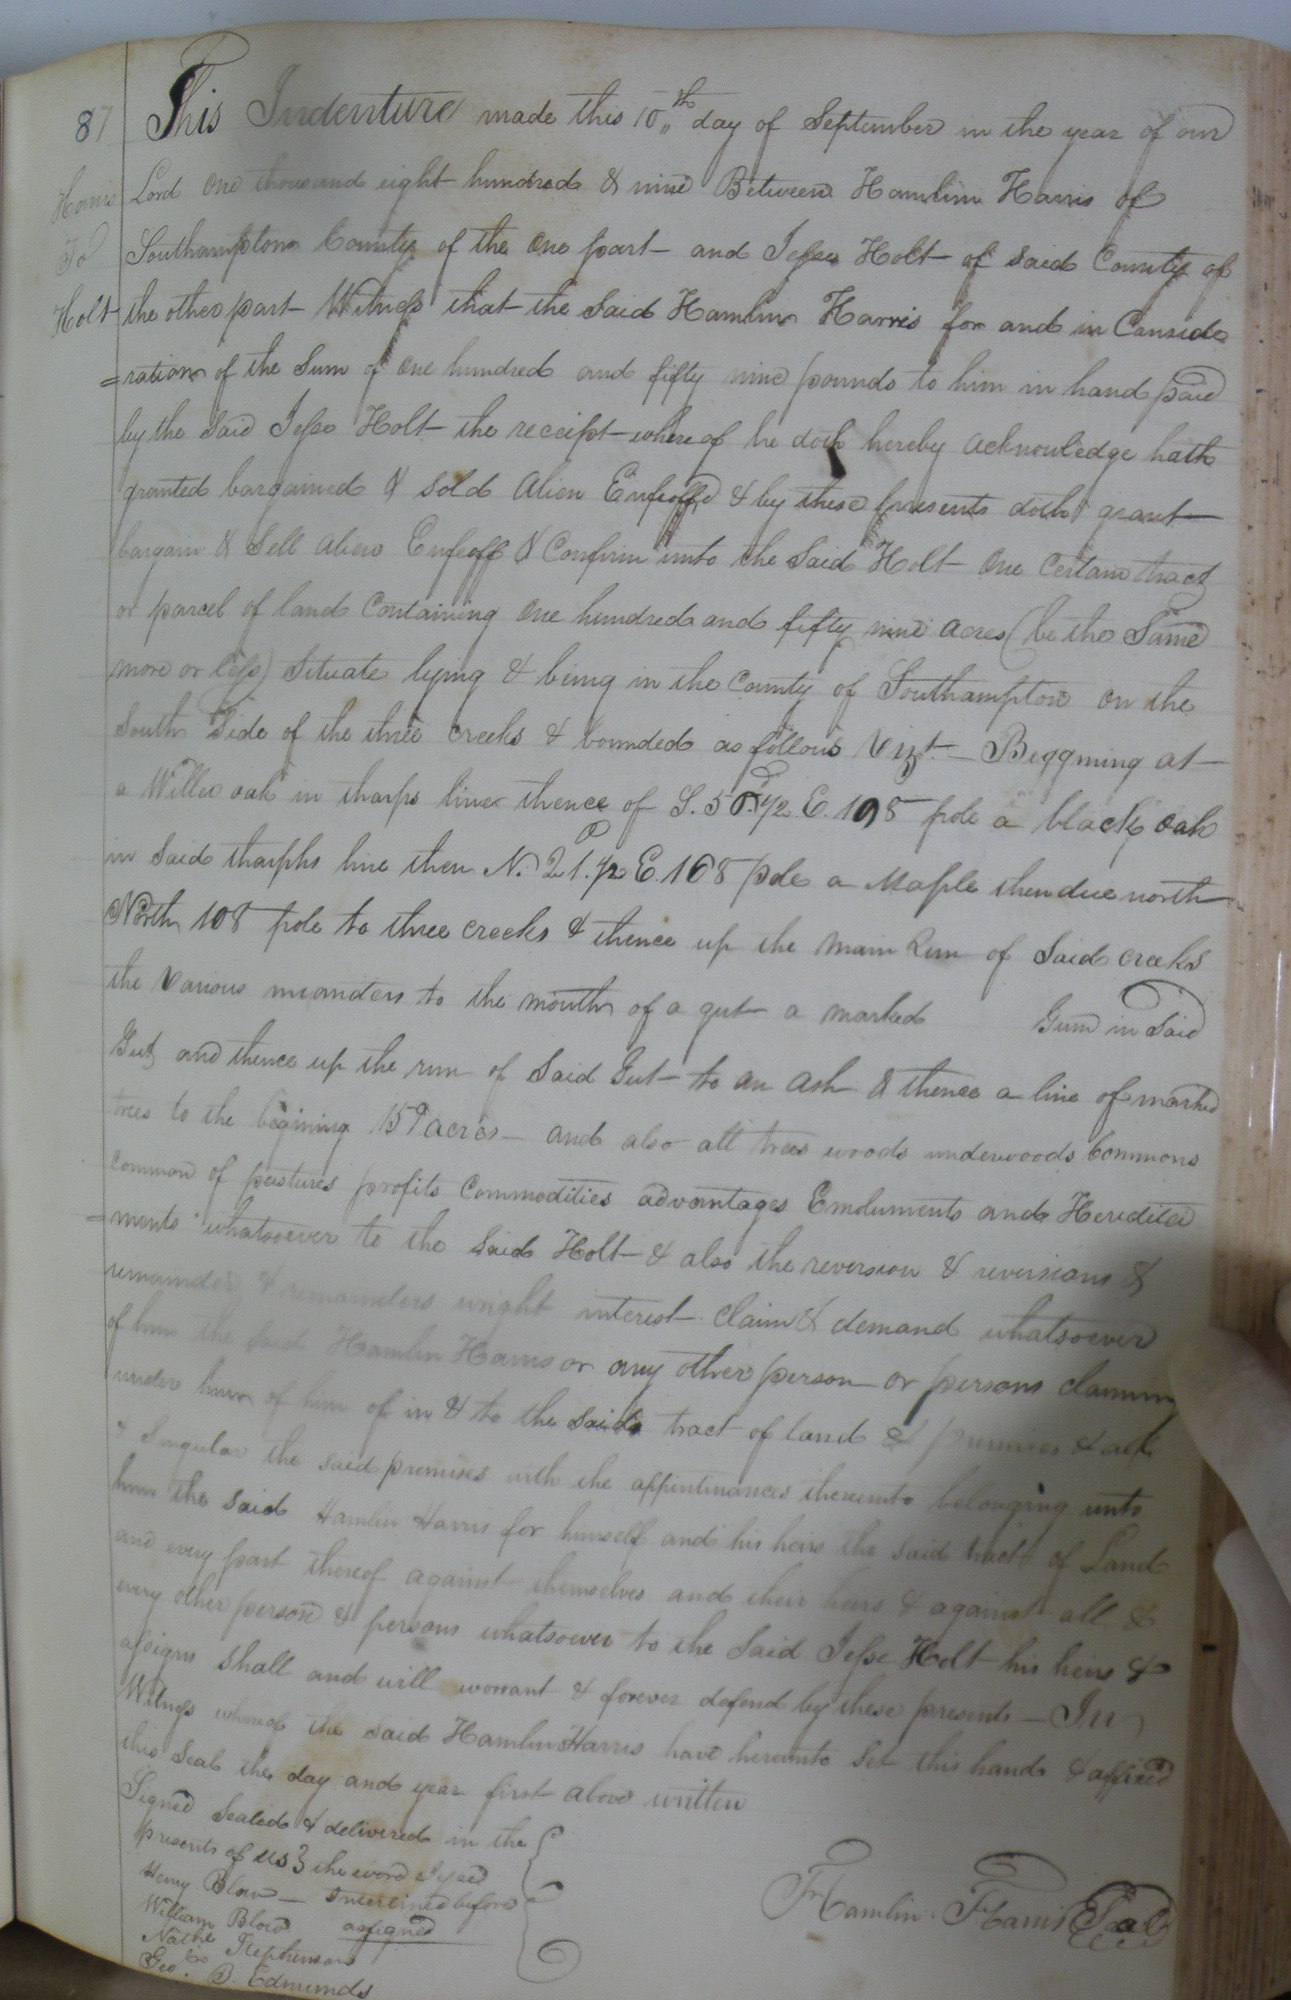 87
Harris
To
Holt
This Indenture made this 10th day of September in the year of our
Lord One thousand eight hundred & nine Between Hamlin Harris of
Southampton County of the One part and Jesse Holt of said County of
the other part Witness that the Said Hamlin Harris for and in Conside
=ration of the Sum of One hundred and fifty nine pounds to him in hand paid
by the Said Jesse Holt the receipt whereof he doth hereby acknowledge hath
granted bargained & sold Alien Enfeoff'd & by these presents doth grant
bargain & Sell Alien Enfeoff & Confirm unto the Said Holt One Certain tract
or parcel of land Containing One hundred and fifty nine acres (be the Same
more or less) Situate lying & being in the County of Southampton on the
South Side of the three creeks & bounded as follows Vizt. Beggining at
a Willo oak in tharps line thence of S. 1/2 E. pole a black oak
in Said tharphs line then N. 21. 1/2 E. 168 pole a Maple then due north
North 108 pole to three creeks & thence up the main Run of Said creeks
the Various meanders to the mouth of a gut a marked Gum in Said
Gut and thence up the run of Said Gut to an ash & thence a line of marked
trees to the begining 159 acres and also all trees woods underwoods Commons
common of pastures profits Commodities advantages Emoluments and Heredita
=ments whatsoever to the Said Holt & also the reversion & reversions &
remainder & remainders wright interest Claim & demand whatsoever
of him the Said Hamlin Harris or any other person or persons claiming
under him of him of in & to the said tract of land & premises & all
& Singular the said premises with the appintinances thereunto belonging unto
him the said Hamlin Harris for himself and his heirs the said tract of Land
and every part thereof against themselves and their heirs & against all &
every other person & persons whatsoever to the Said Jesse Holt his heirs &
assigns shall and will warrant & forever defend by these presents — In
Witness whereof the said Hamlin Harris have hereunto Set this hand & affixed
this Seal the day and year first above written
Signed Sealed & delivered in the
presents of us } the word
Henry Blow — Interlined before
William Blow assigned
Nathl Stephenson
Geo. B. Edmunds
Hamlin Harris Seal